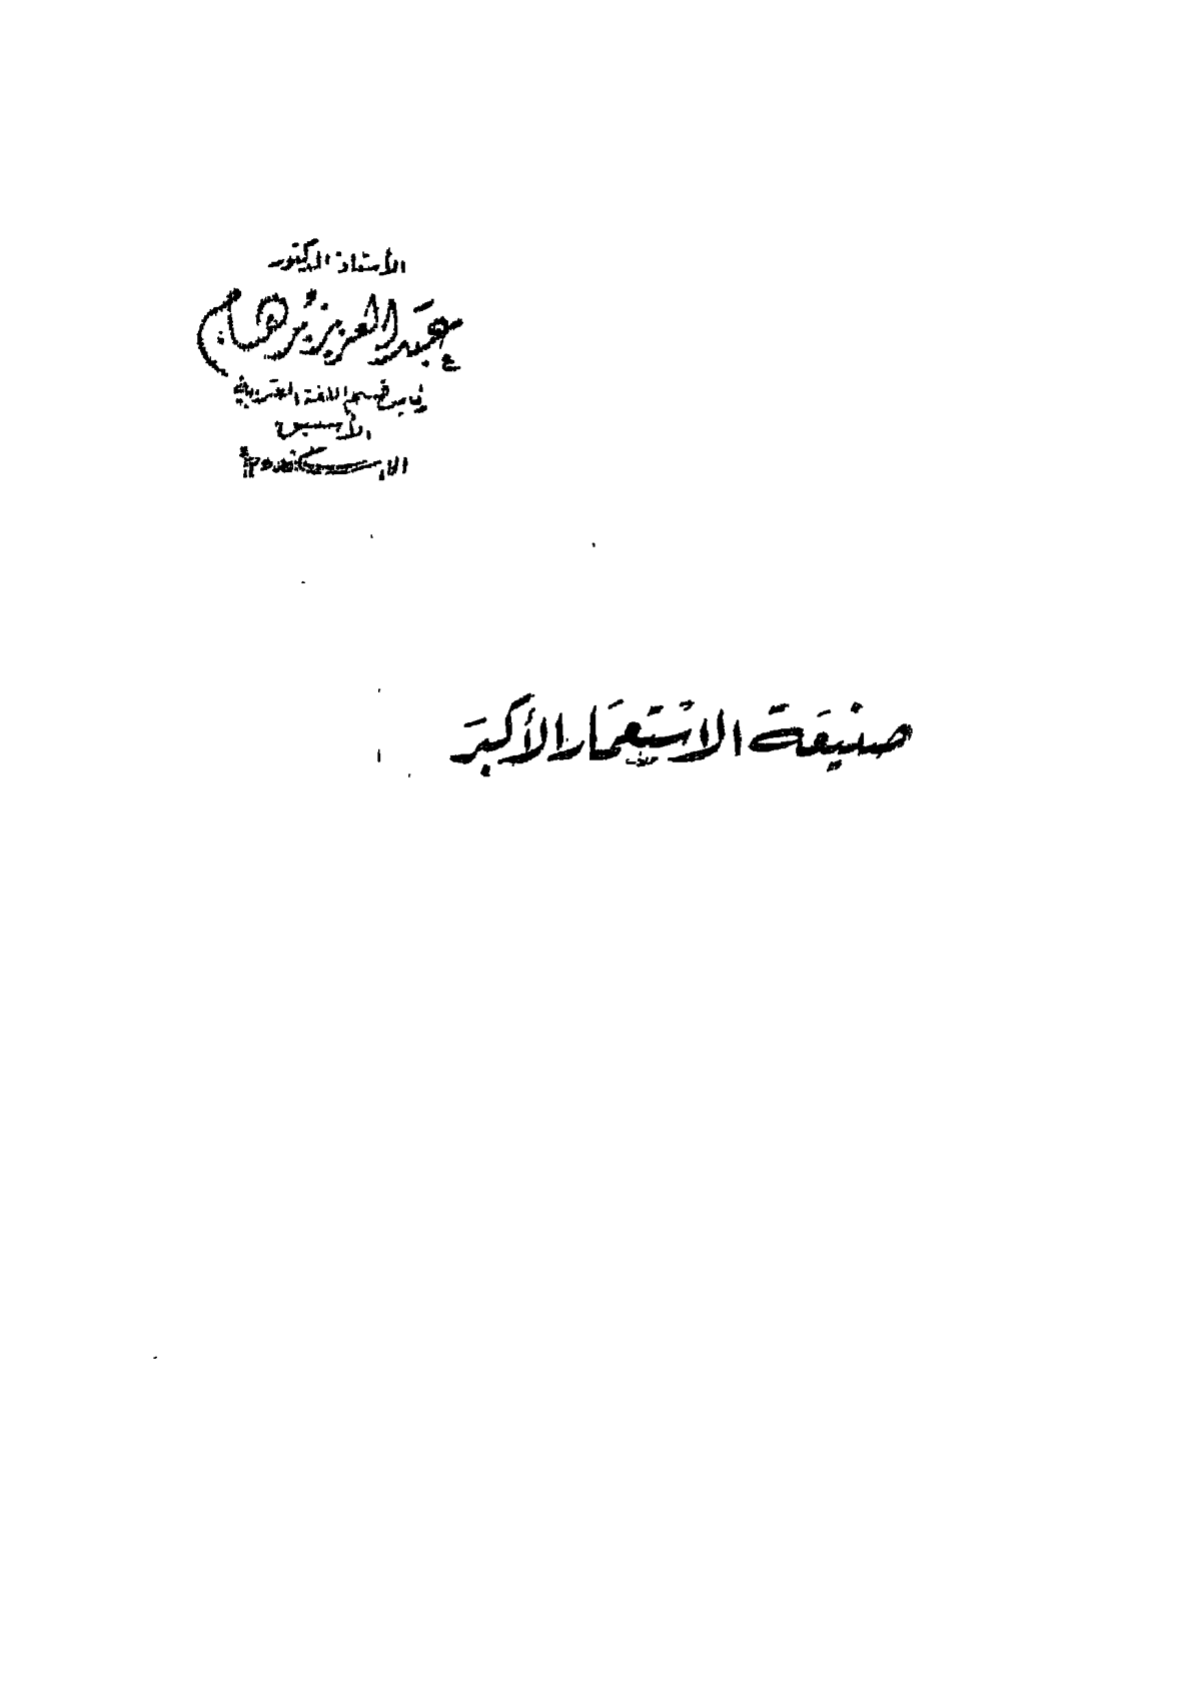 الأستاذ الدكتور
عبد العزيز برهام
رئيس قسم اللغة العربية
الأسبق
الإسكندرية
صنيعة الاستعمار الأكبر